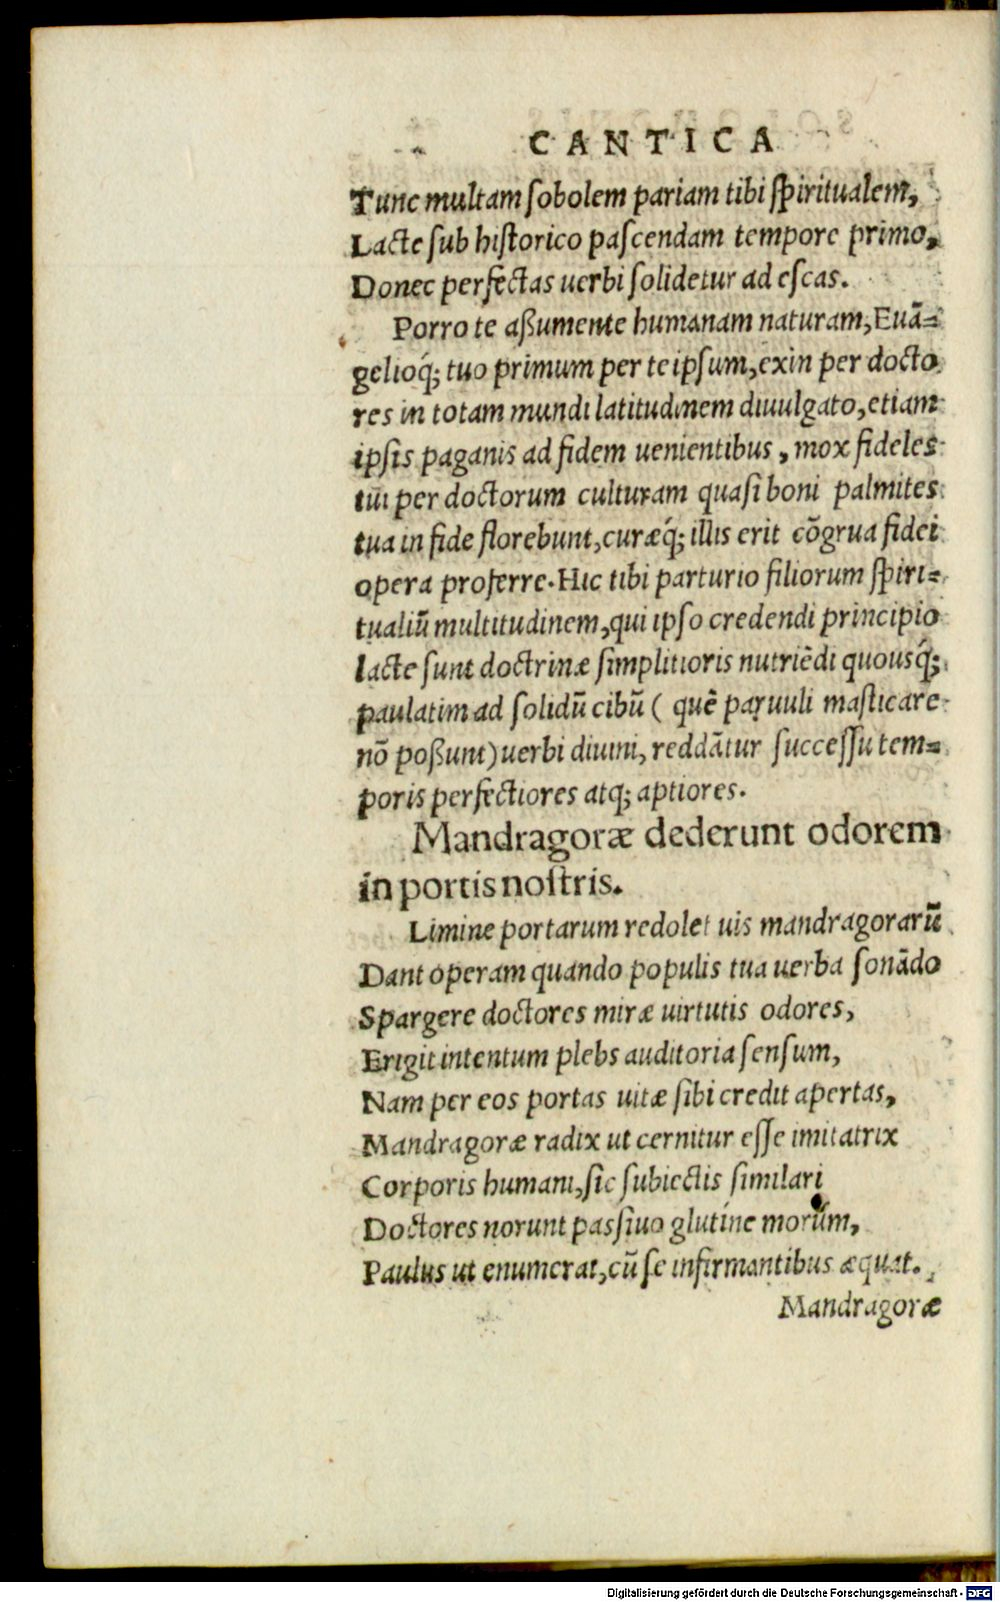 CANTICA
Tunc multam ſobolem pariam tibi ſpiritualem,
Lacte ſub hiſtorico paſcendam tempore primo,
Donec perfectas uerbi ſolidetur ad eſcas.
Porro te aßumente humanam naturam, Euã=
gelioq́; tuo primum per te ipſum, exin per docto
res in totam mundi latitudinem diuulgato, etiam
ipſis paganis ad fidem uenientibus, mox fideles
tui per doctorum culturam quaſi boni palmites
tua in fide florebunt, curæq́; illis erit cõgrua fidei
opera proferre. Hic tibi parturio filiorum ſpiri=
tualiũ multitudinem, qui ipſo credendi principio
lacte ſunt doctrinæ ſimplitioris nutriẽdi quousq́;
paulatim ad ſolidũ cibũ ( quẽ paruuli maſticare
nõ poßunt) uerbi diuini, reddãtur ſucceſſu tem=
poris perfectiores atq; aptiores.
Mandragoræ dederunt odorem
in portis noſtris.
Limine portarum redolet uis mandragorarũ
Dant operam quando populis tua uerba ſonãdo
Spargere doctores miræ uirtutis odores,
Erigit intentum plebs auditoria ſenſum,
Nam per eos portas uitæ ſibi credit apertas,
Mandragoræ radix ut cernitur eſſe imitatrix
Corporis humani, ſic ſubiectis ſimilari
Doctores norunt paſſiuo glutine morum,
Paulus ut enumerat, cũ ſe infirmantibus æquat.
Mandragoræ
Digitalisierung gefördert durch die Deutsche Forschungsgemeinschaft - DFG